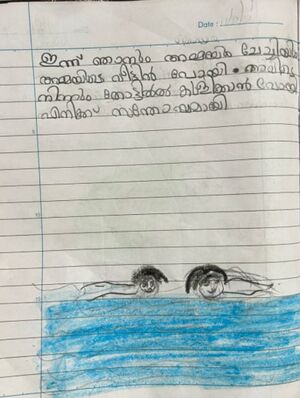 Date :
ഇന്ന് ഞാനും അമ്മയും ചേച്ചിയും
അമ്മയുടെ വീട്ടിൽ പോയി. അവിടെ
നിന്നും തോട്ടിൽ കുളിക്കാൻ പോയി
എനിക്ക് സന്തോഷമായി